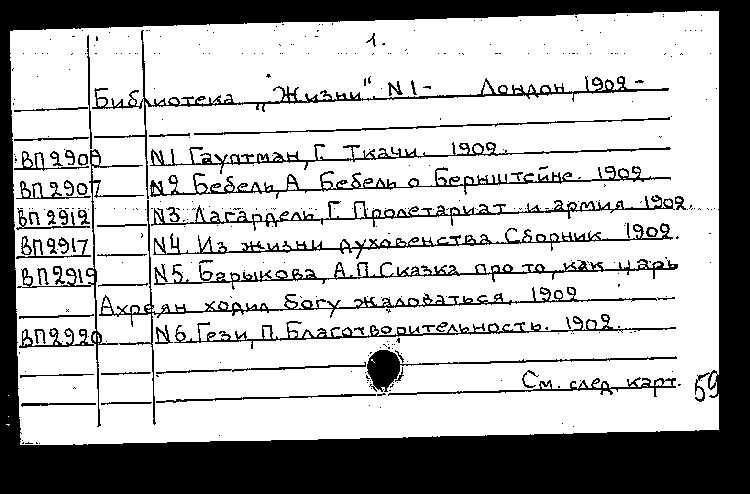 1.
Библиотека „Жизни“. N 1 - Лондон, 1902 -
ВП 2908 N1 Гауптман, Г. Ткачи. 1902.
ВП 2907 N2 Бебель, А. Бебель о Бернштейне. 1902
ВП 2912 N3. Лагардель, Г. Пролетариат и армия. 1902.
ВП 2917 N4. Из жизни духовенства. Сборник. 1902.
ВП 2919 N5. Барыкова, А.П. Сказка про то, как царь
Ахреян ходил богу жаловаться. 1902
ВП 2920 N6. Гези, П. Благотворительность. 1902.
См. след. карт. 59